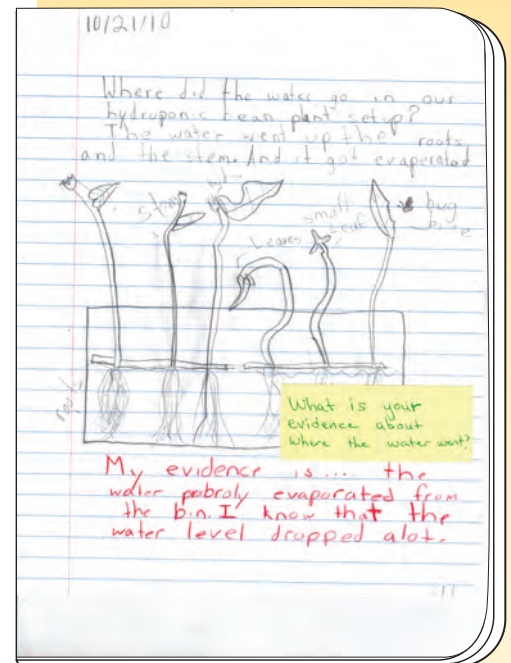 10/21/10
Where did the water go in our
hydroponic bean plant setup?
The water went up the roots
and the stem. And it got evaporated
stem
small
leaf
bug
Leaves
root
What is your
evidence about
where the water went?
My evidence is.... the
water pobroly evaporated from
the b.n. I know that the
water level dropped alot.
11